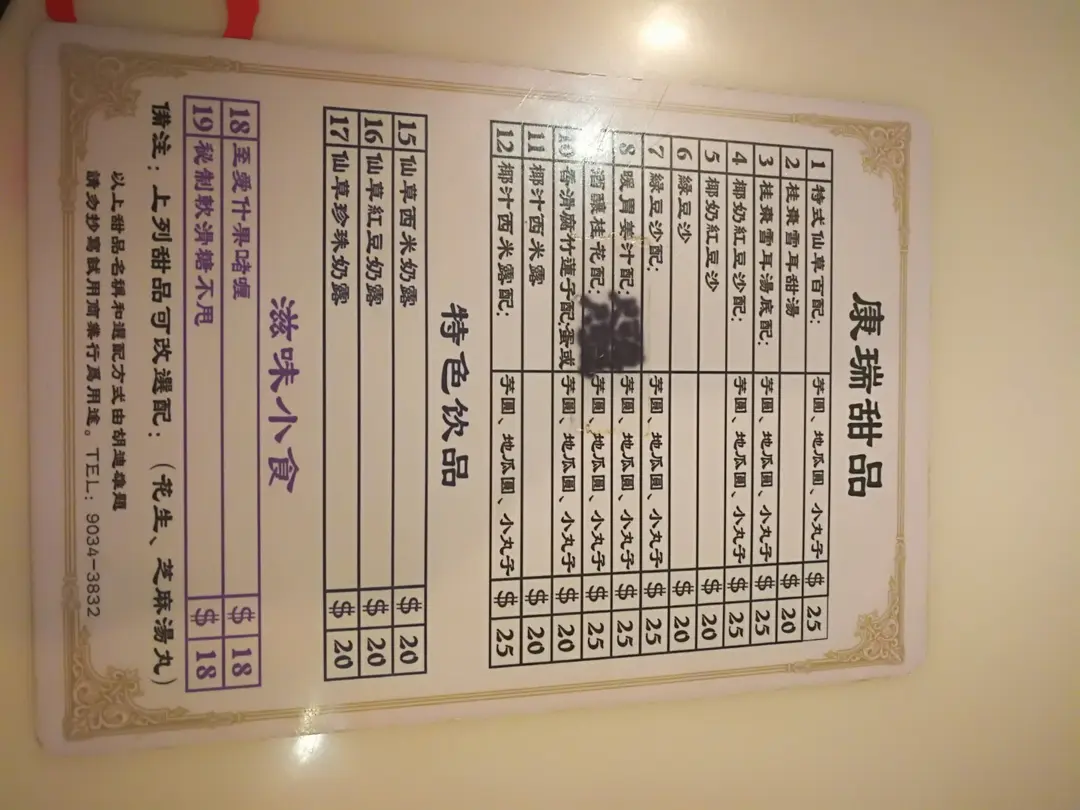 康瑞甜品
1 特式仙草百配: 芋圓、地瓜圓、小丸子 $ 25
2 桂棗雪耳甜湯 $ 20
3 桂棗雪耳湯底配: 芋圓、地瓜圓、小丸子 $ 25
4 椰奶紅豆沙配: 芋圓、地瓜圓、小丸子 $ 25
5 椰奶紅豆沙 $ 20
6 綠豆沙 $ 20
7 綠豆沙配: 芋圓、地瓜圓、小丸子 $ 25
8 暖胃姜汁配: 芋圓、地瓜圓、小丸子 $ 25
酒釀桂花配: 芋圓、地瓜圓、小丸子 $ 25
10 香滑腐竹蓮子配:蛋或芋圓、地瓜圓、小丸子 $ 20
11 椰汁西米露 $ 20
12 椰汁西米露配: 芋圓、地瓜圓、小丸子 $ 25
特色饮品
15 仙草西米奶露 $ 20
16 仙草紅豆奶露 $ 20
17 仙草珍珠奶露 $ 20
滋味小食
18 至愛什果啫喱 $ 18
19 秘制軟滑糖不甩 $ 18
備注:上列甜品可改選配:(花生、芝麻湯丸)
以上甜品名稱和選配方式由胡迪雄題
請勿抄寫試用商業行爲用途。TEL: 9034-3832